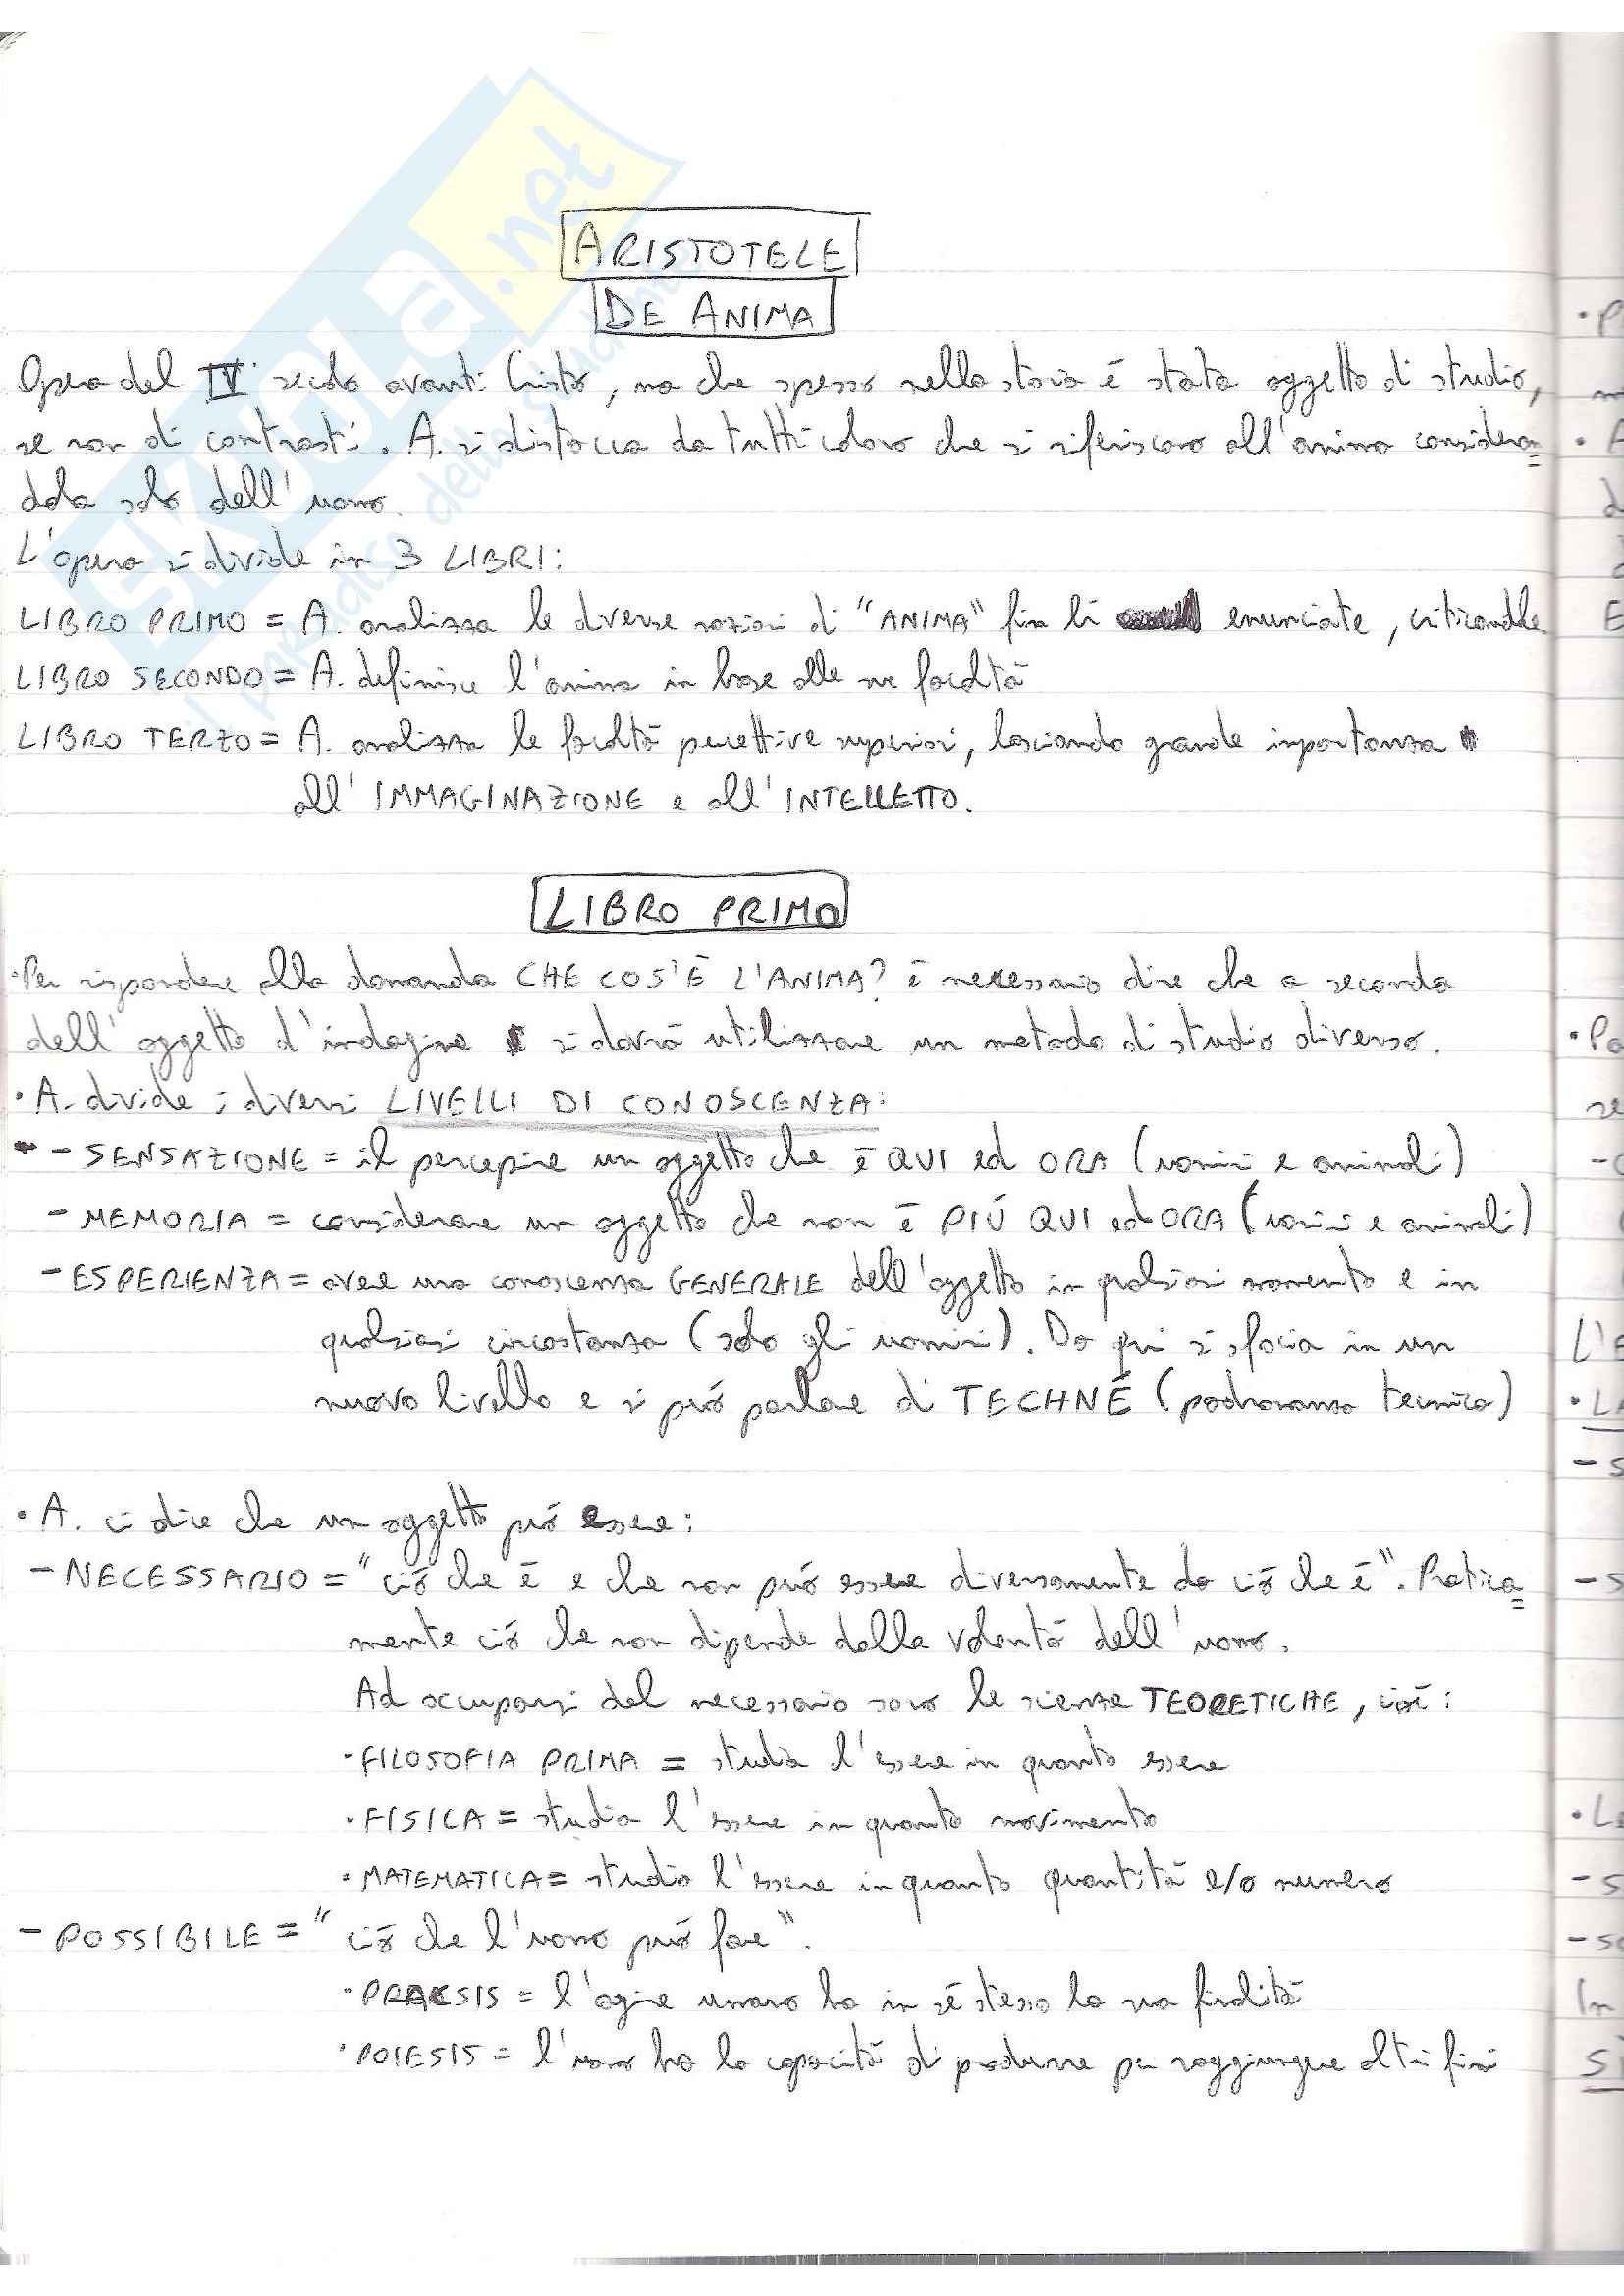 ARISTOTELE
DE ANIMA
Opera del IV secolo avanti Cristo, ma che spesso nella storia è stata oggetto di studio,
se non di contrasti. A. si distacca da tutti coloro che si riferiscono all'anima consideran=
dola solo dell'uomo.
L'opera si divide in 3 LIBRI:
LIBRO PRIMO = A. analizza le diverse nozioni di "ANIMA" fin lì enunciate, criticandole.
LIBRO SECONDO = A. definisce l'anima in base alle sue facoltà
LIBRO TERZO = A. analizza le facoltà percettive superiori, lasciando grande importanza
all'IMMAGINAZIONE e all'INTELLETTO.
LIBRO PRIMO
·Per rispondere alla domanda CHE COS'È L'ANIMA? è necessario dire che a seconda
dell'oggetto d'indagine si dovrà utilizzare un metodo di studio diverso.
·A. divide i diversi LIVELLI DI CONOSCENZA:
- SENSAZIONE = il percepire un oggetto che è QUI ed ORA (uomini e animali)
- MEMORIA = considerare un oggetto che non è PIÚ QUI ed ORA (uomini e animali)
- ESPERIENZA = avere una conoscenza GENERALE dell'oggetto in qualsiasi momento e in
qualsiasi circostanza (solo gli uomini). Da qui si sfocia in un
nuovo livello e si può parlare di TECHNÉ (padronanza tecnica)
·A. ci dice che un oggetto può essere:
- NECESSARIO = "ciò che è e che non può essere diversamente da ciò che è". Pratica=
mente ciò che non dipende dalla volontà dell'uomo.
Ad occuparsi del necessario sono le scienze TEORETICHE, cioè:
·FILOSOFIA PRIMA = studia l'essere in quanto essere
·FISICA = studia l'essere in quanto movimento
·MATEMATICA = studia l'essere in quanto quantità e/o numero
- POSSIBILE = "ciò che l'uomo può fare".
·PRACSIS = l'agire umano ha in sé stesso la sua finalità
·POIESIS = l'uomo ha la capacità di produrre per raggiungere altri fini
skuola.net